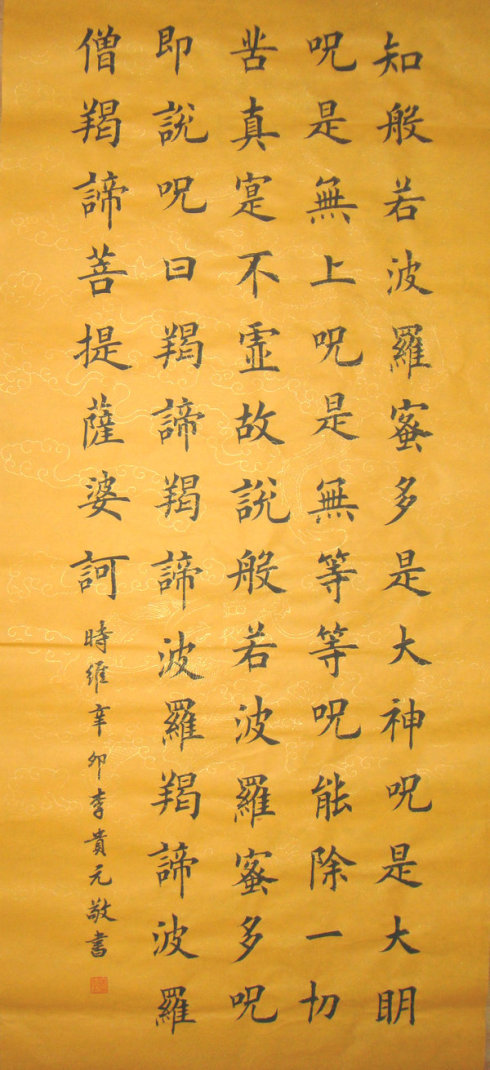 知般若波羅蜜多是大神呪是大明
呪是無上呪是無等等呪能除一切
苦真寔不虛故說般若波羅蜜多呪
即說呪曰羯諦羯諦波羅羯諦波羅
僧羯諦菩提薩婆訶
時維辛卯李貴元敬書